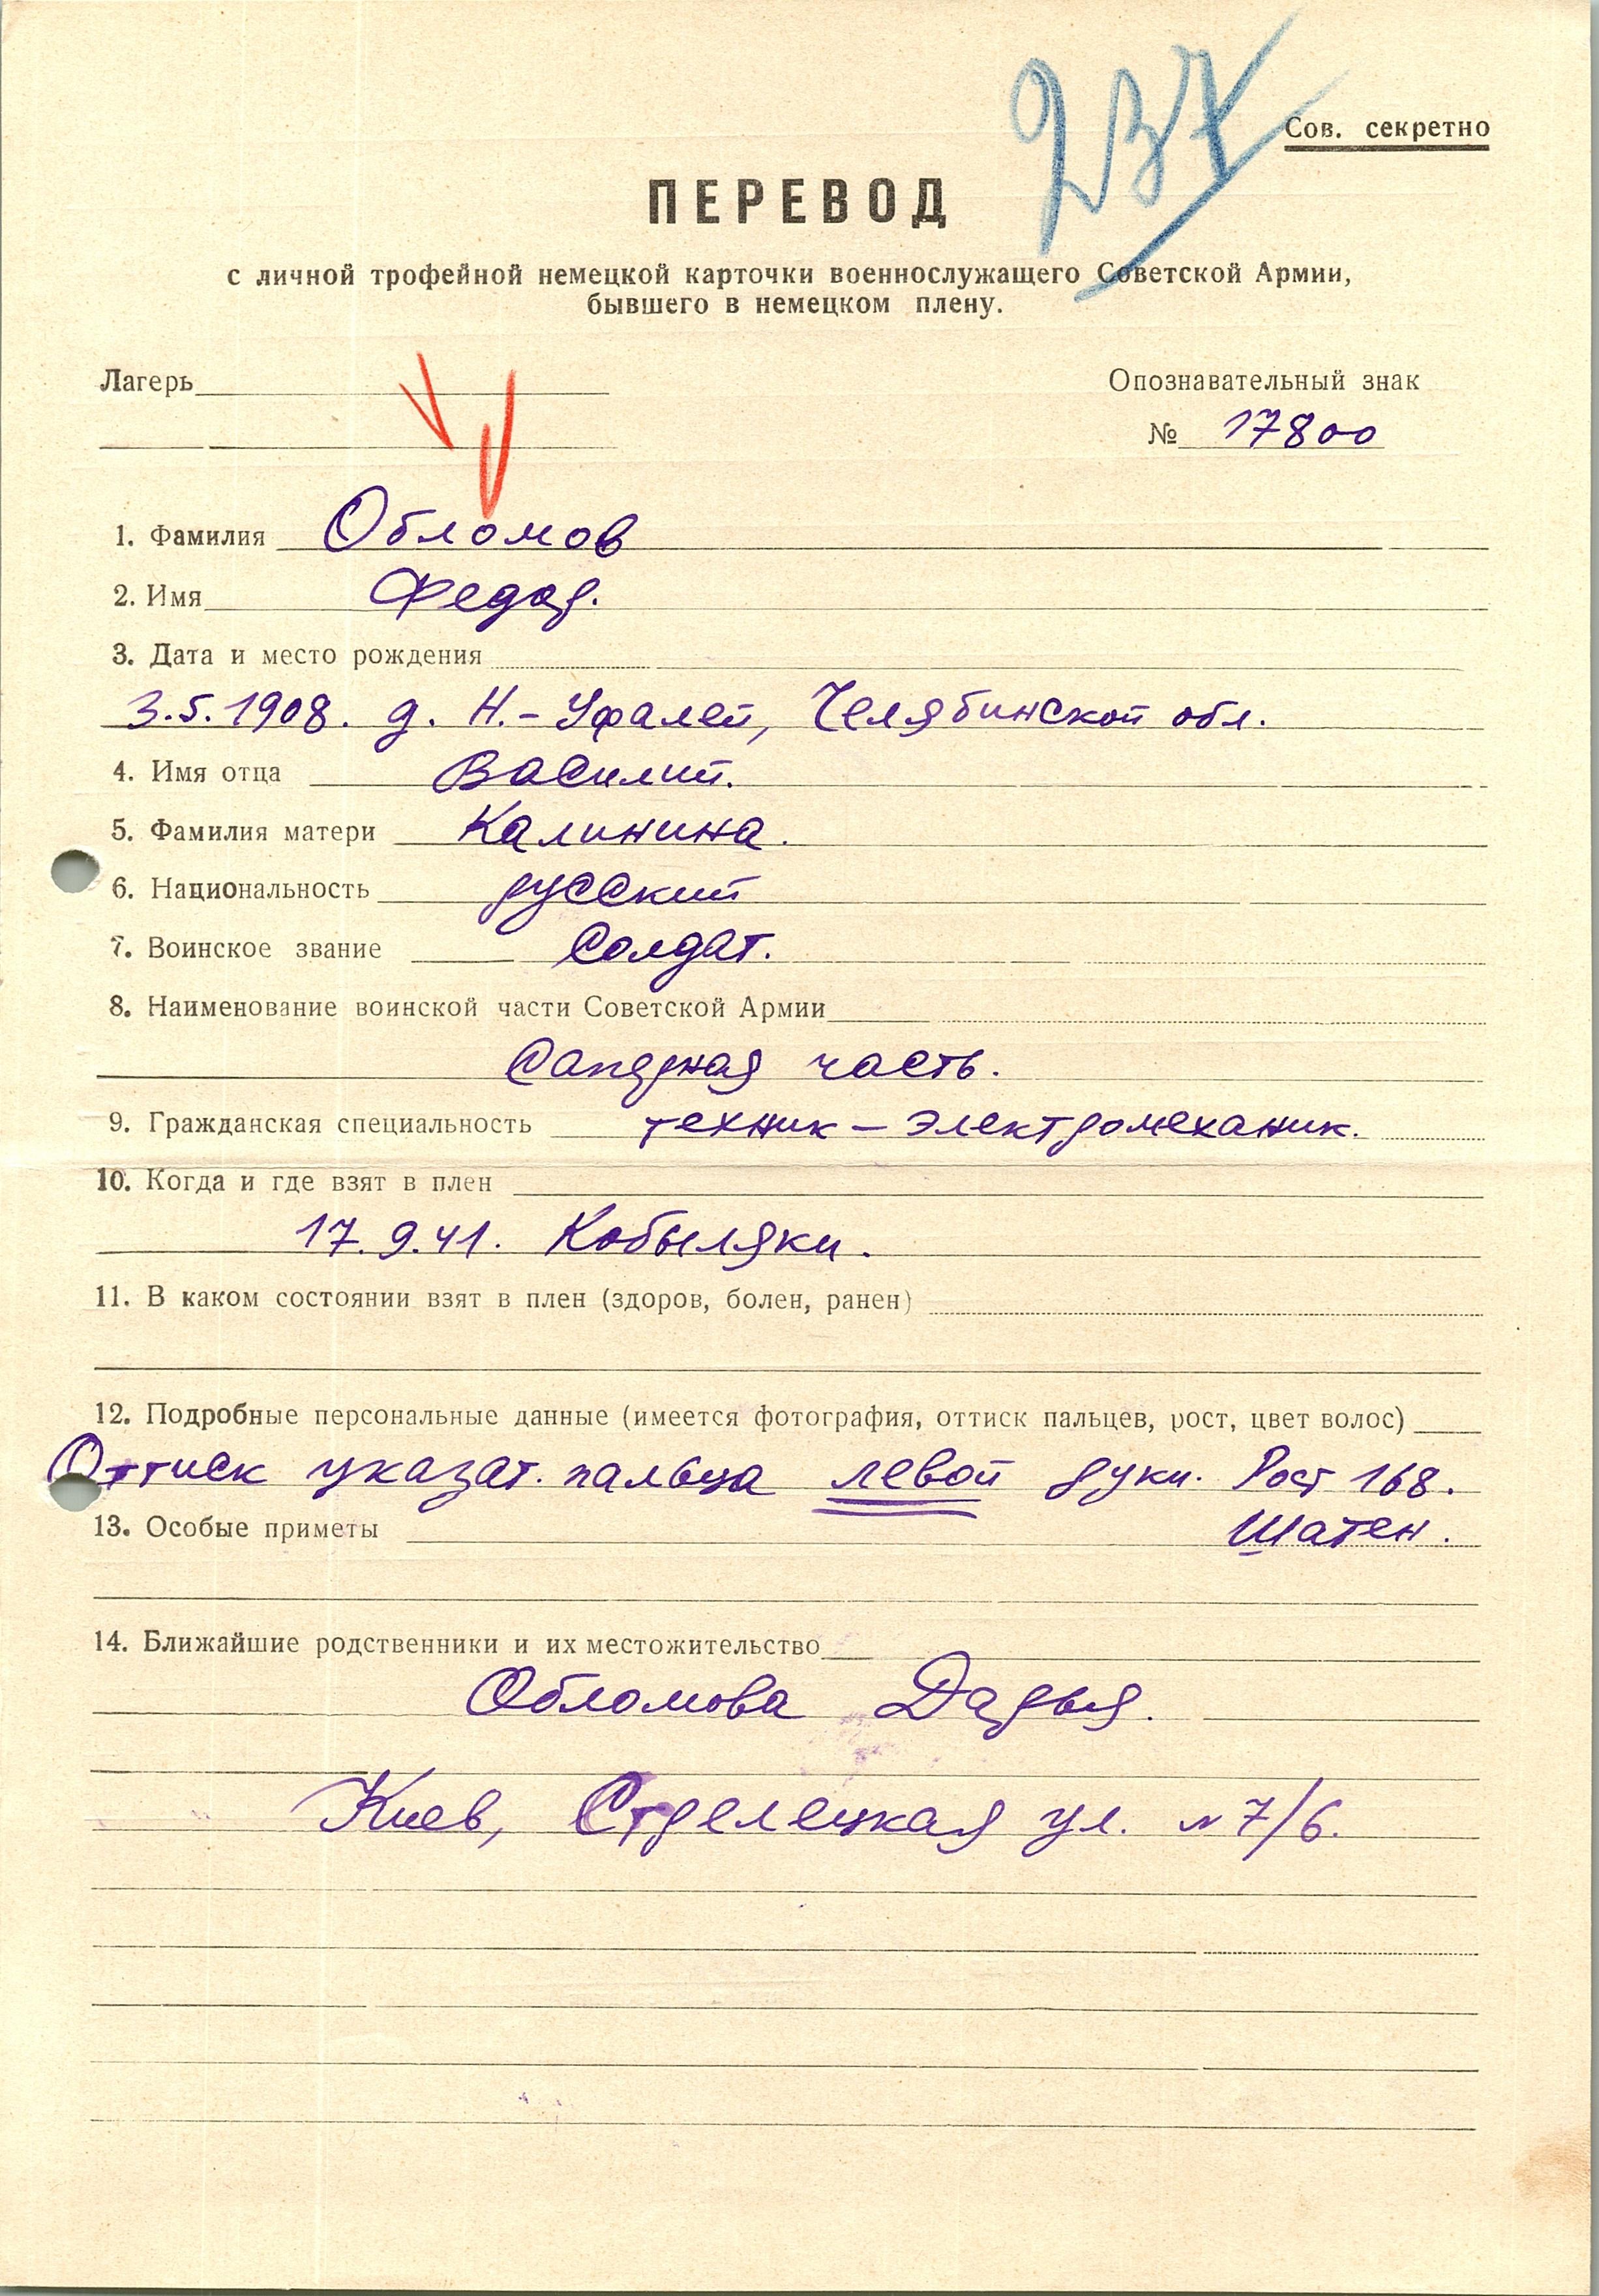 237
Сов. секретно
ПЕРЕВОД
с личной трофейной немецкой карточки военнослужащего Советской Армии,
бывшего в немецком плену.
Лагерь
Опознавательный знак
№ 17800
1. Фамилия Обломов
2. Имя Федор.
3. Дата и место рождения
3.5.1908. д. Н.-Уфалей, Челябинской обл.
4. Имя отца Василий.
5. Фамилия матери Калинина.
6. Национальность русский
7. Воинское звание Солдат.
8. Наименование воинской части Советской Армии
Саперная часть.
9. Гражданская специальность техник - электромеханик.
10. Когда и где взят в плен
17.9.41. Кобыляки.
11. В каком состоянии взят в плен (здоров, болен, ранен)
12. Подробные персональные данные (имеется фотография, оттиск пальцев, рост, цвет волос)
Оттиск указат. пальца левой руки. Рост 168.
13. Особые приметы Шатен.
14. Ближайшие родственники и их местожительство
Обломова Дарья.
Киев, Стрелецкая ул. № 7/6.